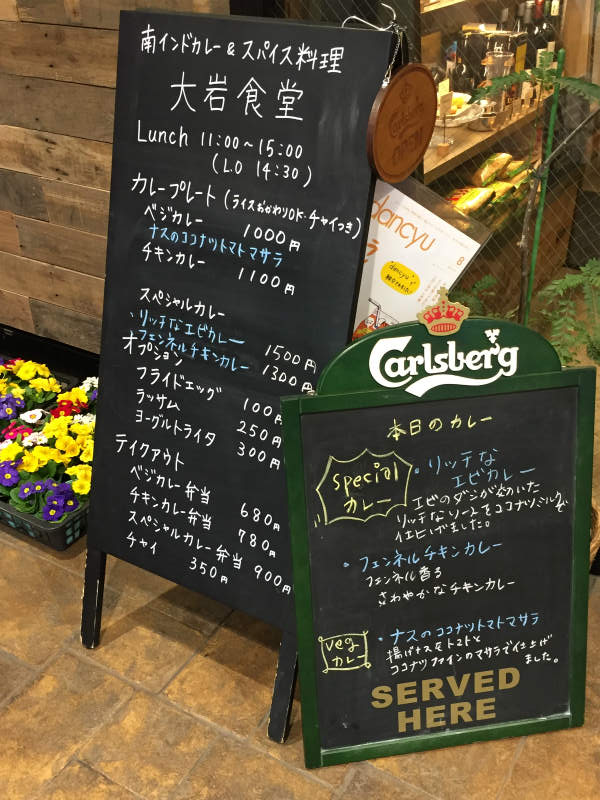 南インドカレー&スパイス料理
大岩食堂
Lunch 11:00~15:00
(L.O 14:30)
カレープレート(ライスおかわりOK・チャイつき)
ベジカレー 1000円
ナスのココナツトマトマサラ
チキンカレー 1100円
スペシャルカレー
・リッチなエビカレー 1500円
・フェンネルチキンカレー 1300円
オプション
フライドエッグ 100円
ラッサム 250円
ヨーグルトライタ 300円
テイクアウト
ベジカレー弁当 680円
チキンカレー弁当 780円
スペシャルカレー弁当 900円
チャイ 350円
Carlsberg
dancyu
8
dancyu
Carlsberg
本日のカレー
Special
カレー
・リッチな
エビカレー
エビのダシが効いた
リッチなソースをココナツミルクで
仕上げました。
・フェンネルチキンカレー
フェンネル香る
さわやかなチキンカレー
veg
カレー
・ナスのココナツトマトマサラ
揚げナスをトマトと
ココナツファインのマサラで仕上げ
ました。
SERVED
HERE